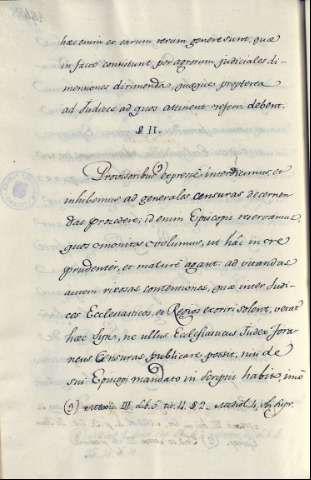 hæc enim ex earum rerum genere sunt, quæ
in facto consistunt, per agrorum judiciales di-
mensiones dirimenda, quæque propterea
ad Judices, ad quos attinent referri debent.
§ II.
Provisoribus expressè interdicimus, et
inhibemus ad generales censuras decernen-
das procedere; id enim Episcopis reservamus,
quos monitos volumus, ut hâc in re
prudenter, et maturè agant: ad vitandas
autem rixosas contentiones, quæ inter Judi-
ces Ecclesiasticos, et Regios exoriri solent, vetat
hæc Synodus, ne ullus Ecclesiasticus Judex fora-
neus Censuras publicare possit, nisi de
sui Episcopi mandato in scriptis habito, imò
III. lib. 5. tit. 11. § 2.